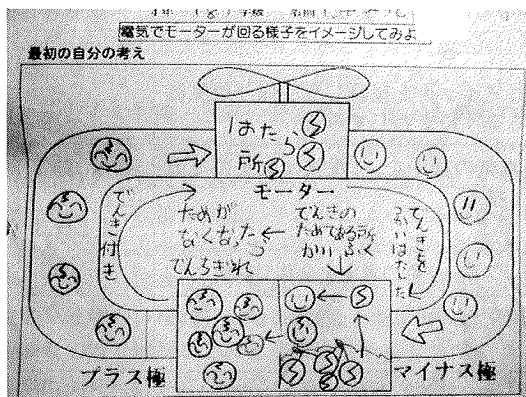 電気でモーターが回る様子をイメージしてみよ
最初の自分の考え
はたらく
所
モーター
でんき付き
ためが
なくなったら
でんちぎれ
でんきの
ためてある所
かいふく
でんきを
つかいはたした
プラス極
マイナス極